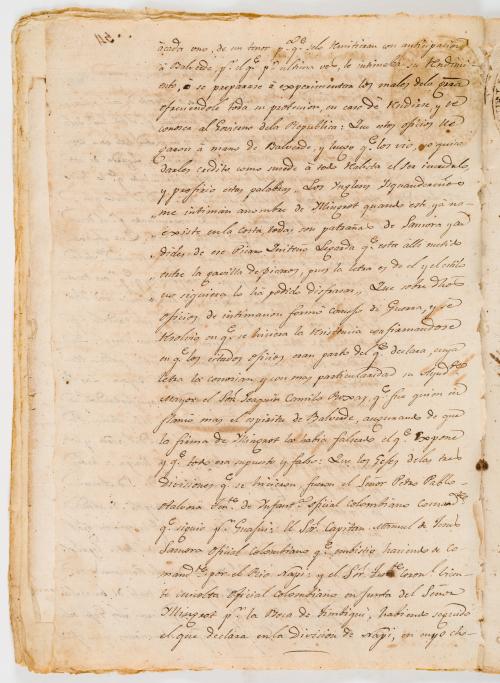 à cada uno, de un tenor p.ª q.e solo remitieran con anticipacion
à Balverde, p.r el q.e p.r ultima vez, le intimaba su rendimi-
ento, ò se preparase à experimentar los males dela
ofreciendole toda su proteccion, en caso de rendirse, y re-
conosca al Govierno dela Republica: Que estos oficios lle-
garon à mano de Balverde, y luego q.e los vio, no quiso
darles credito como sucede à todo Realista
y profirio estas palabras, Los Yngleses
me intiman anombre de Mingnot quando este yà no
existe en la Costa; todas son patrañas de Samora y
de ese Picaro Quiteño q.e esta alli metido
entre la gavilla de picaros, pues la letra es de el y el estilo
que siquiera lo ha podido disfrazar, Que sobre dhos
oficios de intimacion formò consejo de Guerra, y se
resolvio en q.e se hiciera la resistencia confirmandose
en q.e los citados oficios eran parto del q.e declara, cuya
letra la conocian, y con mas particularidad su Ayud.te
Mayor el Señor Joaquin Camilo q.e fue quien in-
flamò mas el espiritu de Balverde, asegurando de que
la firma de Mingnot la habia falseado el q.e expone
y q.e todo era supuesto y falso: Que los Gefes delas tres
Divisiones q.e se hicieron, fueron el Señor Pedro Pablo
de Ynfant.a oficial colombiano
q.e siguio p.r Guapi: el Sor. Capitan Manuel de Jesus
Samora Oficial Colombiano q.e embistio haciendo de Co-
mand.te por el Rio Napi: y el Sor. 
oficial colombiano en Junta del Señor
Mingnot p.r la Boca de Timbiqui, habiendo seguido
el que declara en la division de Napi, en cuyo cho-